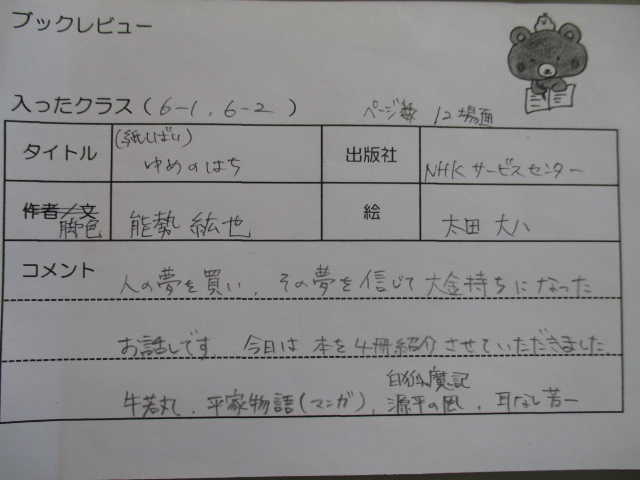 ブックレビュー
入ったクラス（6-1，6-2） ページ数 12場面
タイトル （紙しばい） ゆめのはち 出版社 NHKサービスセンター
作者／文 脚色 能勢 紘也 絵 太田 大八
コメント 人の夢を買い，その夢を信じて大金持ちになった
お話しです 今日は本を4冊紹介させていただきました
白狐魔記
牛若丸，平家物語（マンガ），源平の風，耳なし芳一